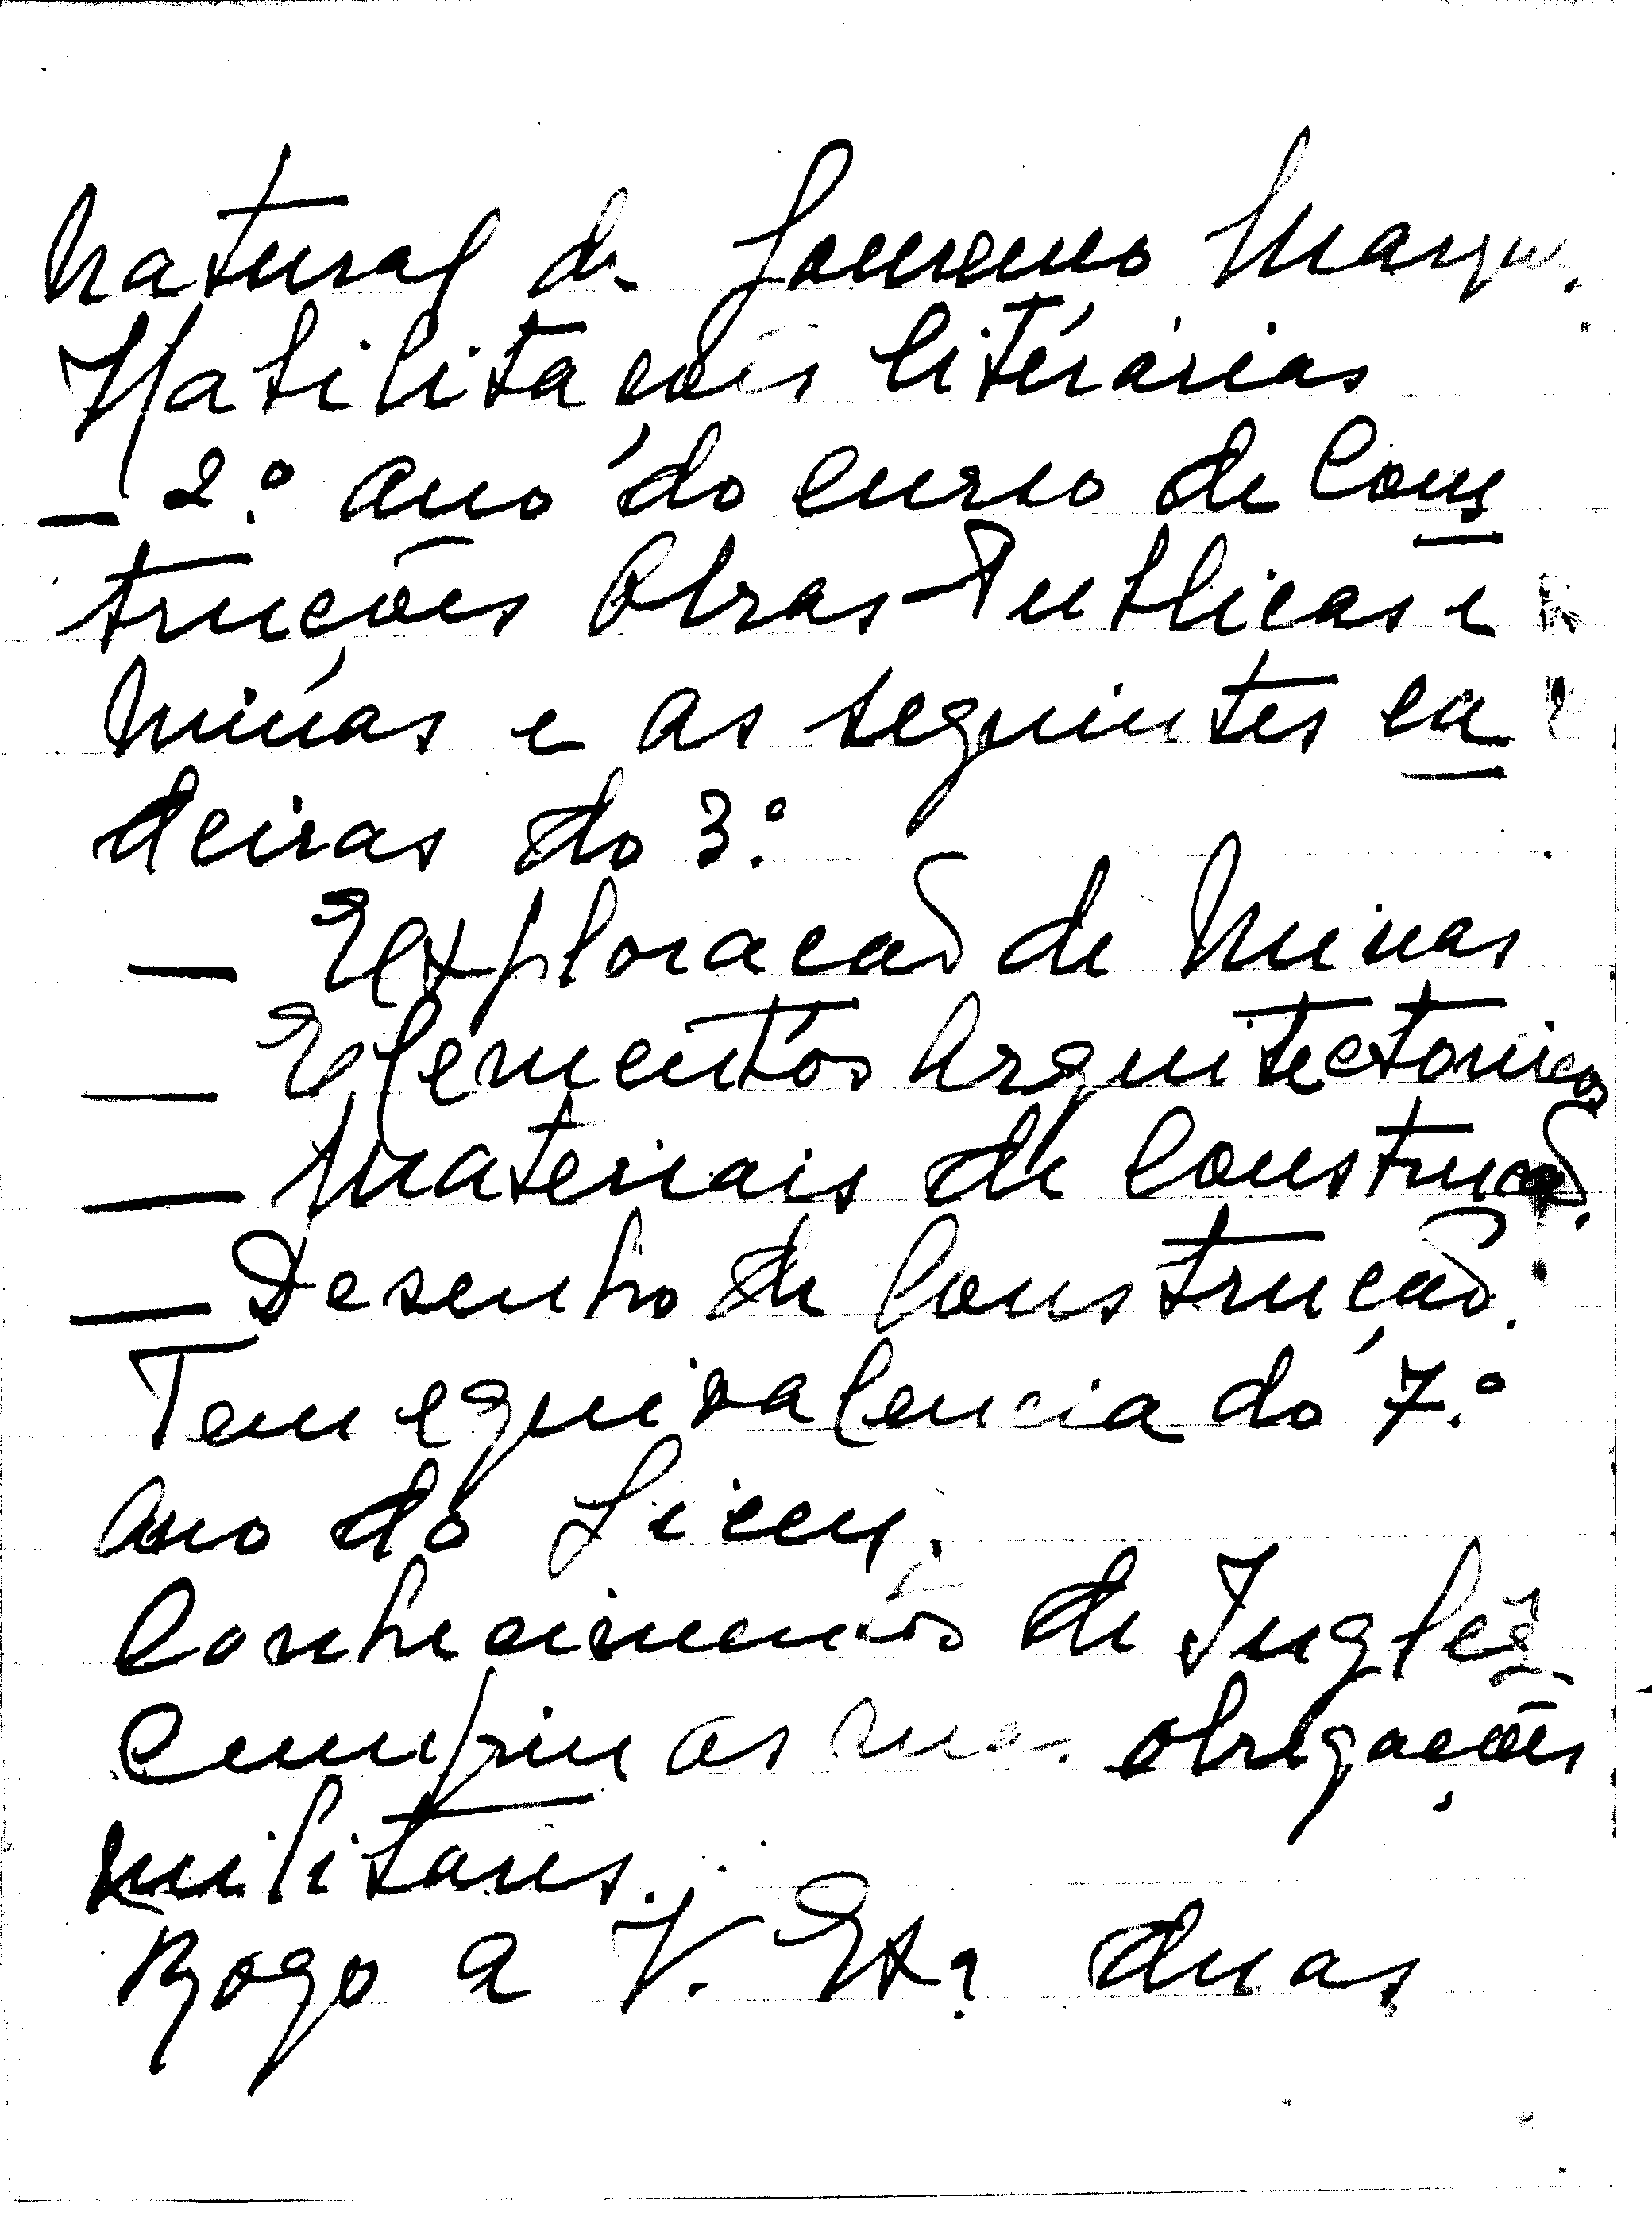 Natural de Lourenço Marques.
Habilitações literárias
— 2.º ano do curso de Cons
truções Obras Publicas e
Minas e as seguintes ca
deiras do 3.º
— Exploração de Minas
— Elementos Arquitectonicos
— Materiais de Construção.
— Desenho de Construção.
Tem equivalencia do 7.º
Ano do Liceu.
Conhecimentos de Inglez
Cumpriu as suas obrigações
militares.
Rogo a V. Exa duas